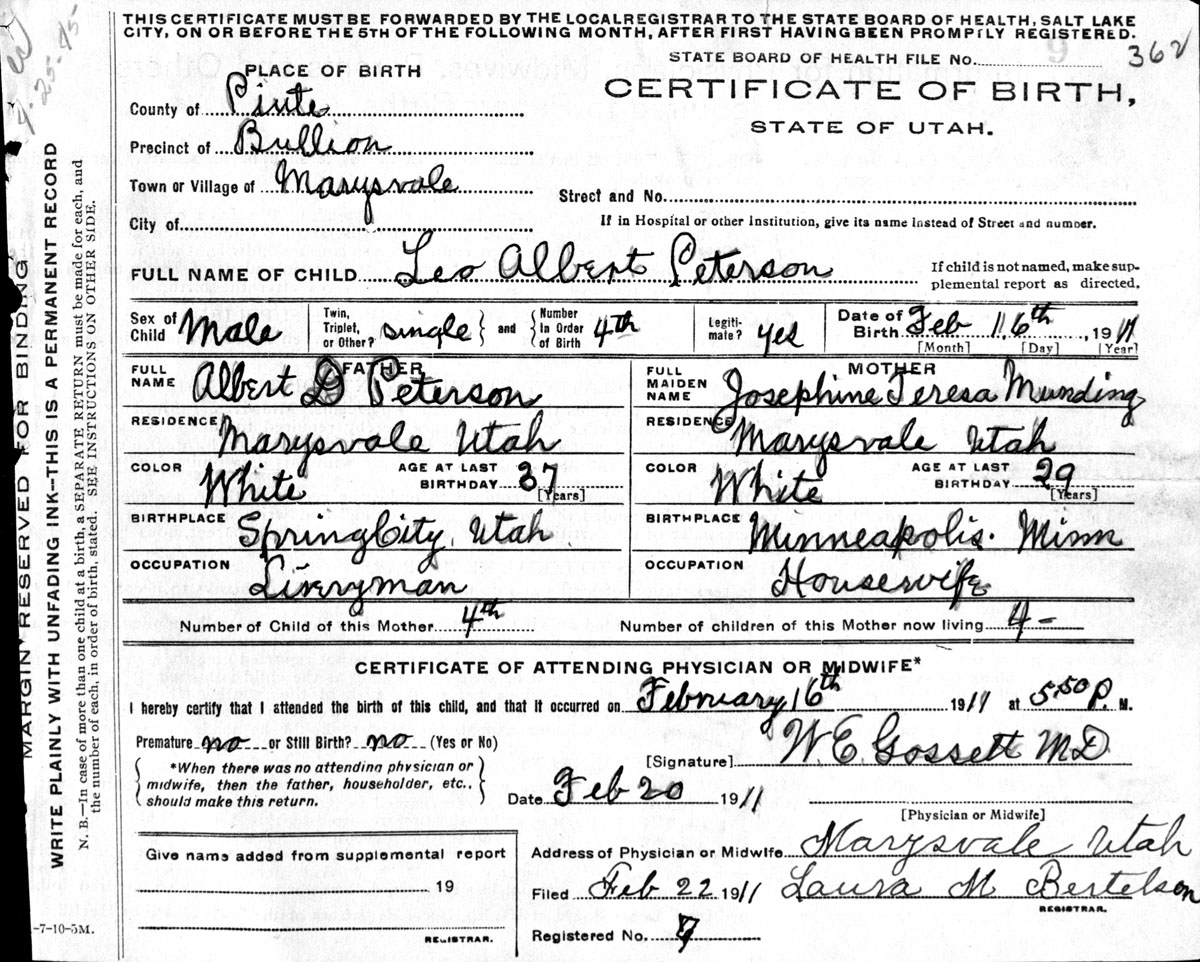 THIS CERTIFICATE MUST BE FORWARDED BY THE LOCAL REGISTRAR TO THE STATE BOARD OF HEALTH, SALT LAKE
CITY, ON OR BEFORE THE 5TH OF THE FOLLOWING MONTH, AFTER FIRST HAVING BEEN PROMPTLY REGISTERED.
STATE BOARD OF HEALTH FILE No. 362
PLACE OF BIRTH
CERTIFICATE OF BIRTH,
STATE OF UTAH.
County of Piute
Precinct of Bullion
Town or Village of Marysvale
Street and No.
City of
If in Hospital or other Institution, give its name instead of Street and number.
FULL NAME OF CHILD Leo Albert Peterson
If child is not named, make sup-
plemental report as directed.
Sex of Child Male Twin, Triplet, or Other? single and Number In Order of Birth 4th Legiti-mate? yes Date of Birth Feb 16th, 1911
[Month] [Day] [Year]
FATHER MOTHER
FULL NAME Albert D Peterson FULL MAIDEN NAME Josephine Teresa Munding
RESIDENCE Marysvale Utah RESIDENCE Marysvale Utah
COLOR White AGE AT LAST BIRTHDAY 37 [Years] COLOR White AGE AT LAST BIRTHDAY 29 [Years]
BIRTHPLACE Spring City, Utah BIRTHPLACE Minneapolis. Minn
OCCUPATION Liveryman OCCUPATION Housewife
Number of Child of this Mother 4th Number of children of this Mother now living 4-
CERTIFICATE OF ATTENDING PHYSICIAN OR MIDWIFE*
I hereby certify that I attended the birth of this child, and that it occurred on February 16th 1911 at 5:50 P. M.
Premature no or Still Birth? no (Yes or No)
[Signature] W. E. Gossett M D.
*When there was no attending physician or
midwife, then the father, householder, etc.,
should make this return.
Date Feb 20 1911
[Physician or Midwife]
Address of Physician or Midwife Marysvale Utah
Give name added from supplemental report
19
REGISTRAR.
Filed Feb 22 1911 Laura M Bertelson
REGISTRAR.
Registered No. 7
-7-10-5M.
MARGIN RESERVED FOR BINDING
WRITE PLAINLY WITH UNFADING INK--THIS IS A PERMANENT RECORD
N. B.--In case of more than one child at a birth, a SEPARATE RETURN must be made for each, and
the number of each, in order of birth, stated. SEE INSTRUCTIONS ON OTHER SIDE.